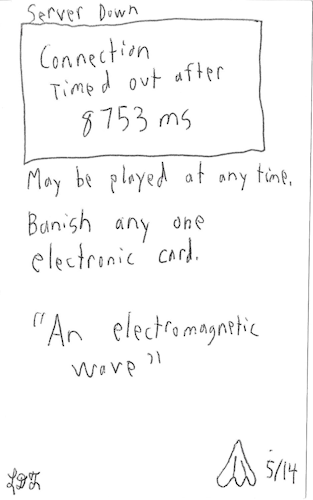 Server Down
Connection
Timed out after
8753 ms
May be played at any time.
Banish any one
electronic card.
"An electromagnetic
wave"
5/14